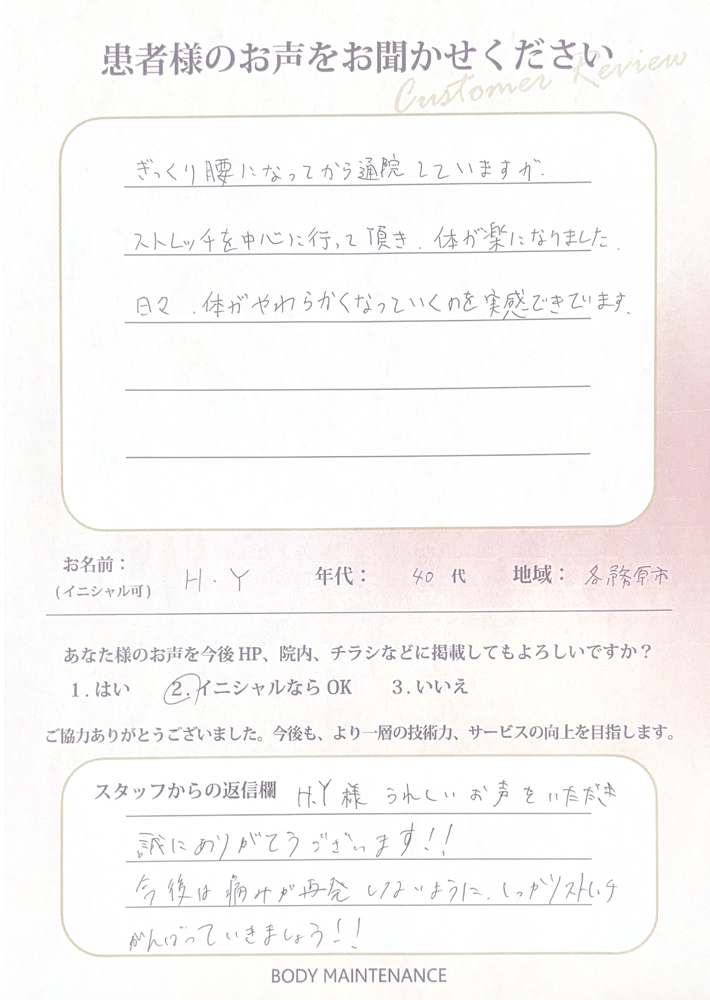 患者様のお声をお聞かせください
Customer Review
ぎっくり腰になってから通院していますが、
ストレッチを中心に行って頂き、体が楽になりました。
日々、体がやわらかくなっていくのを実感できています。
お名前：
(イニシャル可)
H.Y
年代： 40代
地域： 各務原市
あなた様のお声を今後HP、院内、チラシなどに掲載してもよろしいですか？
1.はい 2.イニシャルならOK 3.いいえ
ご協力ありがとうございました。今後も、より一層の技術力、サービスの向上を目指します。
スタッフからの返信欄 H.Y様 うれしいお声をいただき
誠にありがとうございます!!
今後は痛みが再発しないように、しっかりストレッチ
がんばっていきましょう!!
BODY MAINTENANCE